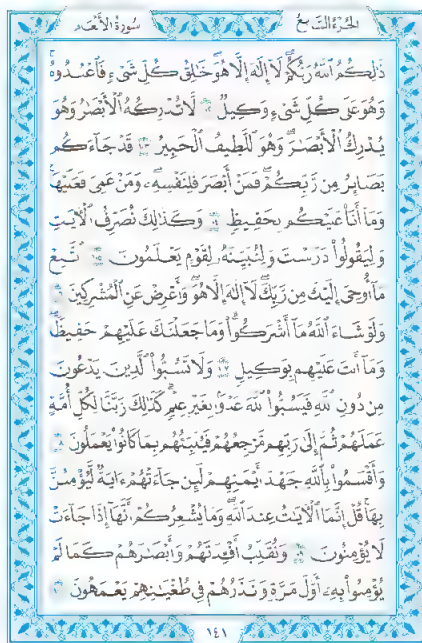 الجزء السابع سورة الأنعام
ذَٰلِكُمُ ٱللَّهُ رَبُّكُمْ لَآ إِلَٰهَ إِلَّا هُوَ خَٰلِقُ كُلِّ شَىْءٍ فَٱعْبُدُوهُ
وَهُوَ عَلَىٰ كُلِّ شَىْءٍ وَكِيلٌ ١٠٢ لَّا تُدْرِكُهُ ٱلْأَبْصَٰرُ وَهُوَ
يُدْرِكُ ٱلْأَبْصَٰرَ وَهُوَ ٱللَّطِيفُ ٱلْخَبِيرُ ١٠٣ قَدْ جَآءَكُم
بَصَآئِرُ مِن رَّبِّكُمْ فَمَنْ أَبْصَرَ فَلِنَفْسِهِۦ وَمَنْ عَمِىَ فَعَلَيْهَا
وَمَآ أَنَا۠ عَلَيْكُم بِحَفِيظٍ ١٠٤ وَكَذَٰلِكَ نُصَرِّفُ ٱلْأَيَٰتِ
وَلِيَقُولُوا۟ دَرَسْتَ وَلِنُبَيِّنَهُۥ لِقَوْمٍ يَعْلَمُونَ ١٠٥ ٱتَّبِعْ
مَآ أُوحِىَ إِلَيْكَ مِن رَّبِّكَ لَآ إِلَٰهَ إِلَّا هُوَ وَأَعْرِضْ عَنِ ٱلْمُشْرِكِينَ ١٠٦
وَلَوْ شَآءَ ٱللَّهُ مَآ أَشْرَكُوا۟ وَمَا جَعَلْنَٰكَ عَلَيْهِمْ حَفِيظًا
وَمَآ أَنتَ عَلَيْهِم بِوَكِيلٍ ١٠٧ وَلَا تَسُبُّوا۟ ٱلَّذِينَ يَدْعُونَ
مِن دُونِ ٱللَّهِ فَيَسُبُّوا۟ ٱللَّهَ عَدْوًۢا بِغَيْرِ عِلْمٍ كَذَٰلِكَ زَيَّنَّا لِكُلِّ أُمَّةٍ
عَمَلَهُمْ ثُمَّ إِلَىٰ رَبِّهِم مَّرْجِعُهُمْ فَيُنَبِّئُهُم بِمَا كَانُوا۟ يَعْمَلُونَ ١٠٨
وَأَقْسَمُوا۟ بِٱللَّهِ جَهْدَ أَيْمَٰنِهِمْ لَئِن جَآءَتْهُمْ ءَايَةٌ لَّيُؤْمِنُنَّ
بِهَا قُلْ إِنَّمَا ٱلْأَيَٰتُ عِندَ ٱللَّهِ وَمَا يُشْعِرُكُمْ أَنَّهَآ إِذَا جَآءَتْ
لَا يُؤْمِنُونَ ١٠٩ وَنُقَلِّبُ أَفْـِٔدَتَهُمْ وَأَبْصَٰرَهُمْ كَمَا لَمْ
يُؤْمِنُوا۟ بِهِۦٓ أَوَّلَ مَرَّةٍ وَنَذَرُهُمْ فِى طُغْيَٰنِهِمْ يَعْمَهُونَ ١١٠
١٤١